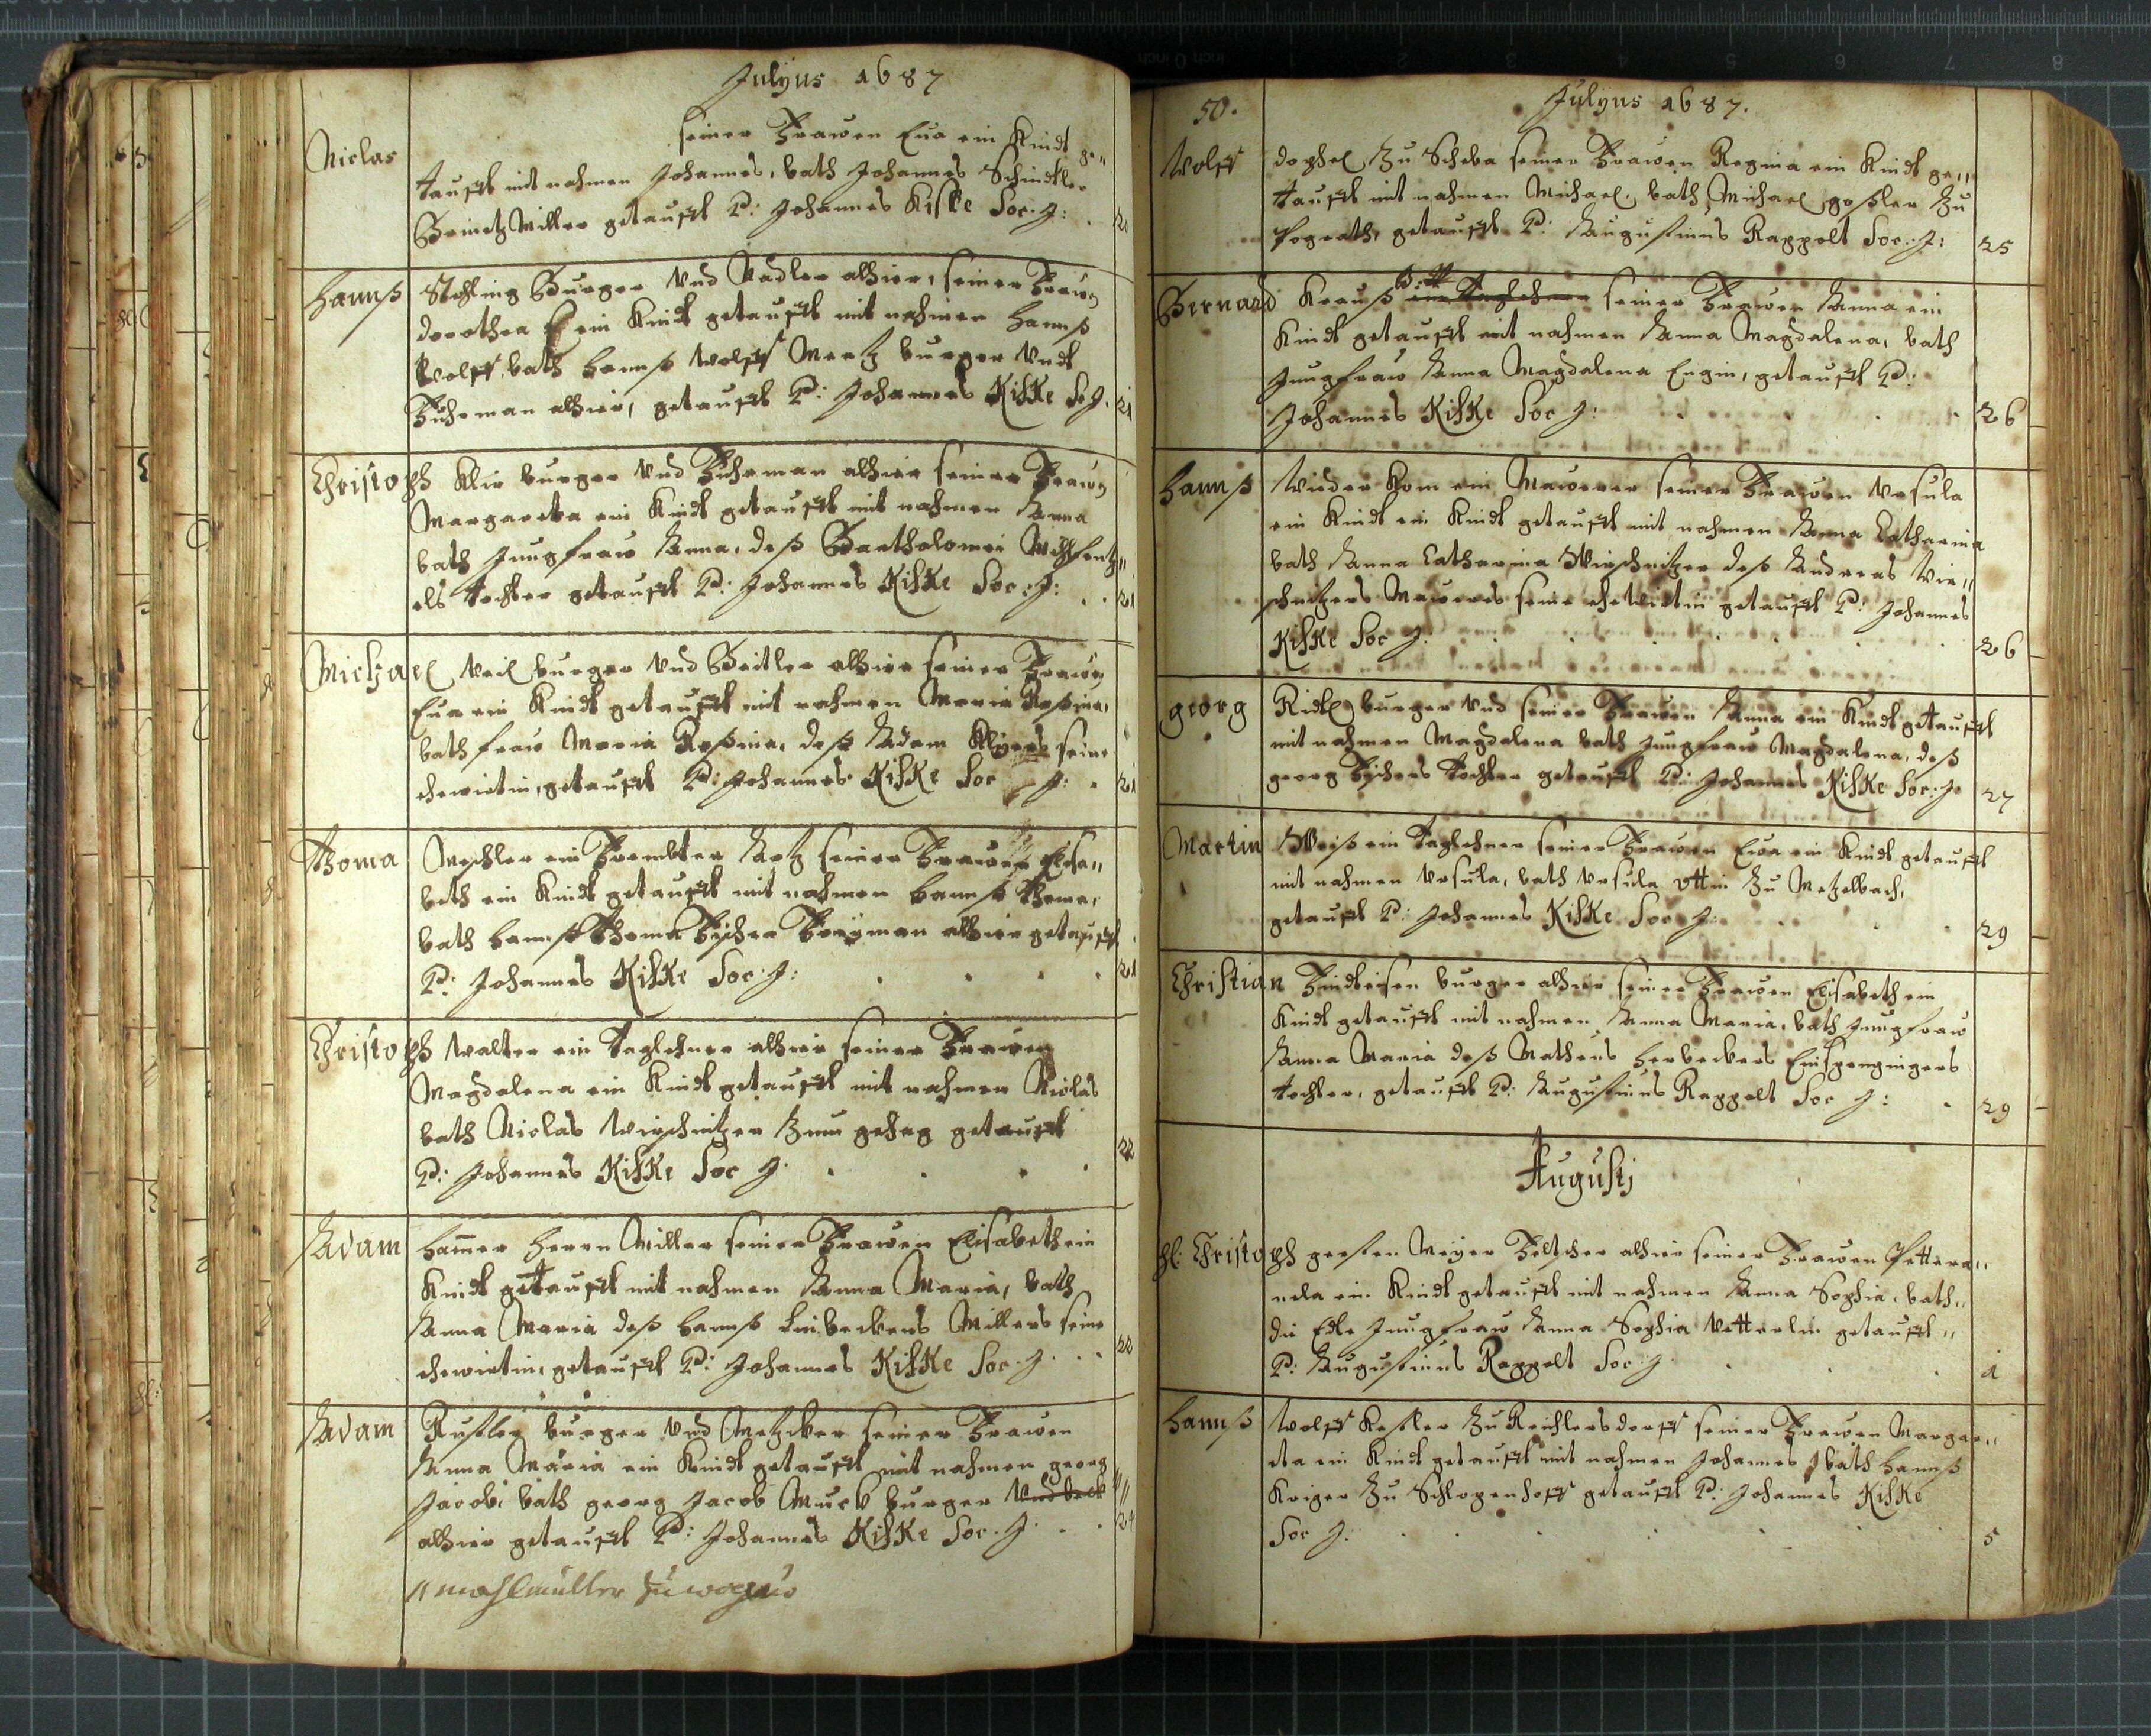 Julyus 1687
Niclas seiner Frawen Eua ein Kindt ge„
taufft mit nahmen Johannes, bath Johannes Schindtler
Miller getaufft P: Johannes Kiske Soc. J: 21
Hannß Burger Vnd Nadler alhier, seiner Frawen
dorothea ein Kindt getaufft mit nahmen Hannß
Wolff, bath Hannß Wolff Mertz burger Vndt
Fuhrman alhier, getaufft P: Johannes Kiske So J. 21
Christoph Klir burger Vnd Fuhrman alhier seiner Frawen
Margaretha ein Kindt getaufft mit nahmen Anna
bath Jungfraw Anna, deß Bartholomei
els tochter getaufft P: Johannes Kiske Soc: J: 21
Michael Veil burger Vnd Beitler alhier seiner Frawen
Eua ein Kindt getaufft mit nahmen Maria Rosina,
bath fraw Maria Rosina, deß Adam seine
ehewirtin, getaufft P: Johannes Kiske Soc J: 21
Thoma ein seiner Frawen Elisa„
beth ein Kindt getaufft mit nahmen Hannß Thoma,
bath Hannß Thoma alhier getaufft
P: Johannes Kiske Soc: J: 21
Christoph Walter ein Taglehner alhier seiner Frawen
Magdalena ein Kindt getaufft mit nahmen Niclas
bath Niclas Wirschnitzer Zum gehag getaufft
P: Johannes Kiske Soc J. 22
Adam Ham̄er Herrn Miller seiner Frawen Elisabeth ein
Kindt getaufft mit nahmen Anna Maria, bath
Anna Maria deß Hannß Millers seine
ehewirtin, getaufft P: Johannes Kiske Soc. J.
Adam burger Vnd Metzcker seiner Frawen
Anna Maria ein Kindt getaufft mit nahmen georg
Jacob, bath georg Jacob Murck burger Vnd beck „
alhier getaufft P: Johannes Kiske Soc. J. 24
„ mahlmüller zu
50. Julyus 1687.
Wolff Zu Scheba seiner Frawen Regina ein Kindt ge„
taufft mit nahmen Michael, bath Michael Zu
getaufft P: Augustinus Rappolt Soc: J: 25
Bernard Krauß ein Taglehner seiner Frawen Anna ein
Kindt getaufft mit nahmen Anna Magdalena, bath
Jungfraw Anna Magdalena Engin, getaufft P:
Johannes Kiske Soc J: 26
Hannß Wieder Kom ein Mawerer seiner Frawen Vrsula
ein Kindt ein Kindt getaufft mit nahmen Anna Catharina
bath Anna Catharina Wirschnitzer deß Andreas Wir„
schnitzers Mawrers seine ehewirtin getaufft P: Johannes
Kiske Soc J: 26
georg Ridel burger Vnd seiner Frawen Anna ein Kindt getaufft
mit nahmen Magdalena bath Jungfraw Magdalena, deß
georg Fischers Tochter getaufft P: Johannes Kiske Soc: J. 27
Martin Weiß ein Taglehner seiner Frawen Eua ein Kindt getaufft
mit nahmen Vrsula, bath Vrsula Ottin Zu Metzelbach,
getaufft P: Johannes Kiske Soc J: 29
Christian Findteisen burger alhier seiner Frawen Elisabeth ein
Kindt getaufft mit nahmen Anna Maria, bath Jungfraw
Anna Maria deß Matheus
tochter, getaufft P: Augustinus Rappolt Soc J: 29
Augustj
H: Christoph gersten Meyer alhier seiner Frawen Pettero„
nela ein Kindt getaufft mit nahmen Anna Sophia, bath„
die Edle Jungfraw Anna Sophia Vetterlin getaufft„
P: Augustinus Rappolt Soc: J 1
Hannß Wolff Kestler Zu Reichlersdorff seiner Frawen Margar„
eta ein Kindt getaufft mit nahmen Johannes bath Hannß
Kriger Zu getaufft P: Johannes Kiske
Soc J: 5